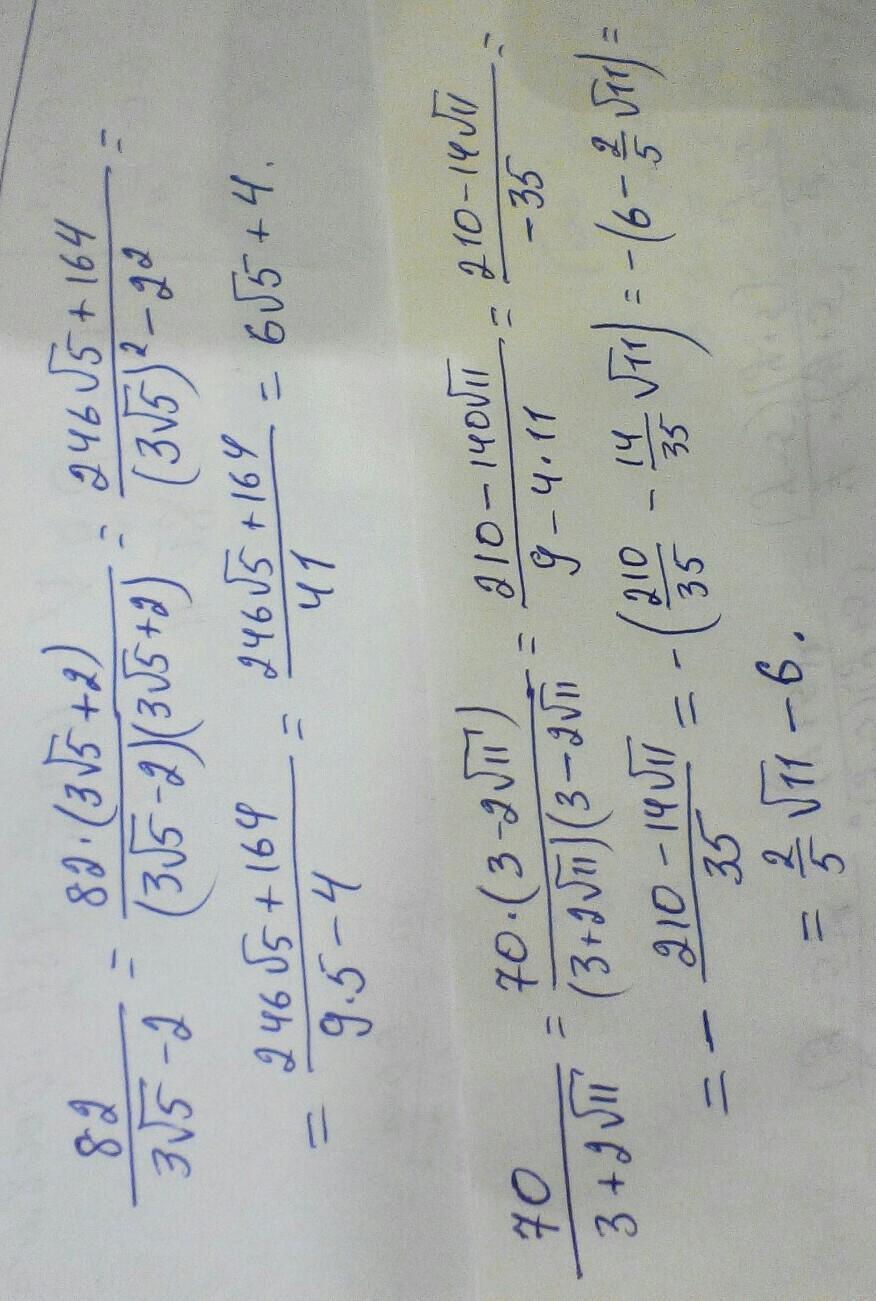 82/(3√5-2) = 82·(3√5+2)/((3√5-2)(3√5+2)) = (246√5+164)/((3√5)²-2²) =
= (246√5+164)/(9·5-4) = (246√5+164)/41 = 6√5+4.
70/(3+2√11) = 70·(3-2√11)/((3+2√11)(3-2√11) = (210-140√11)/(9-4·11) = (210-14√11)/(-35) =
= -(210-14√11)/35 = -(210/35 - 14/35 √11) = -(6-2/5 √11) =
= 2/5 √11 - 6.